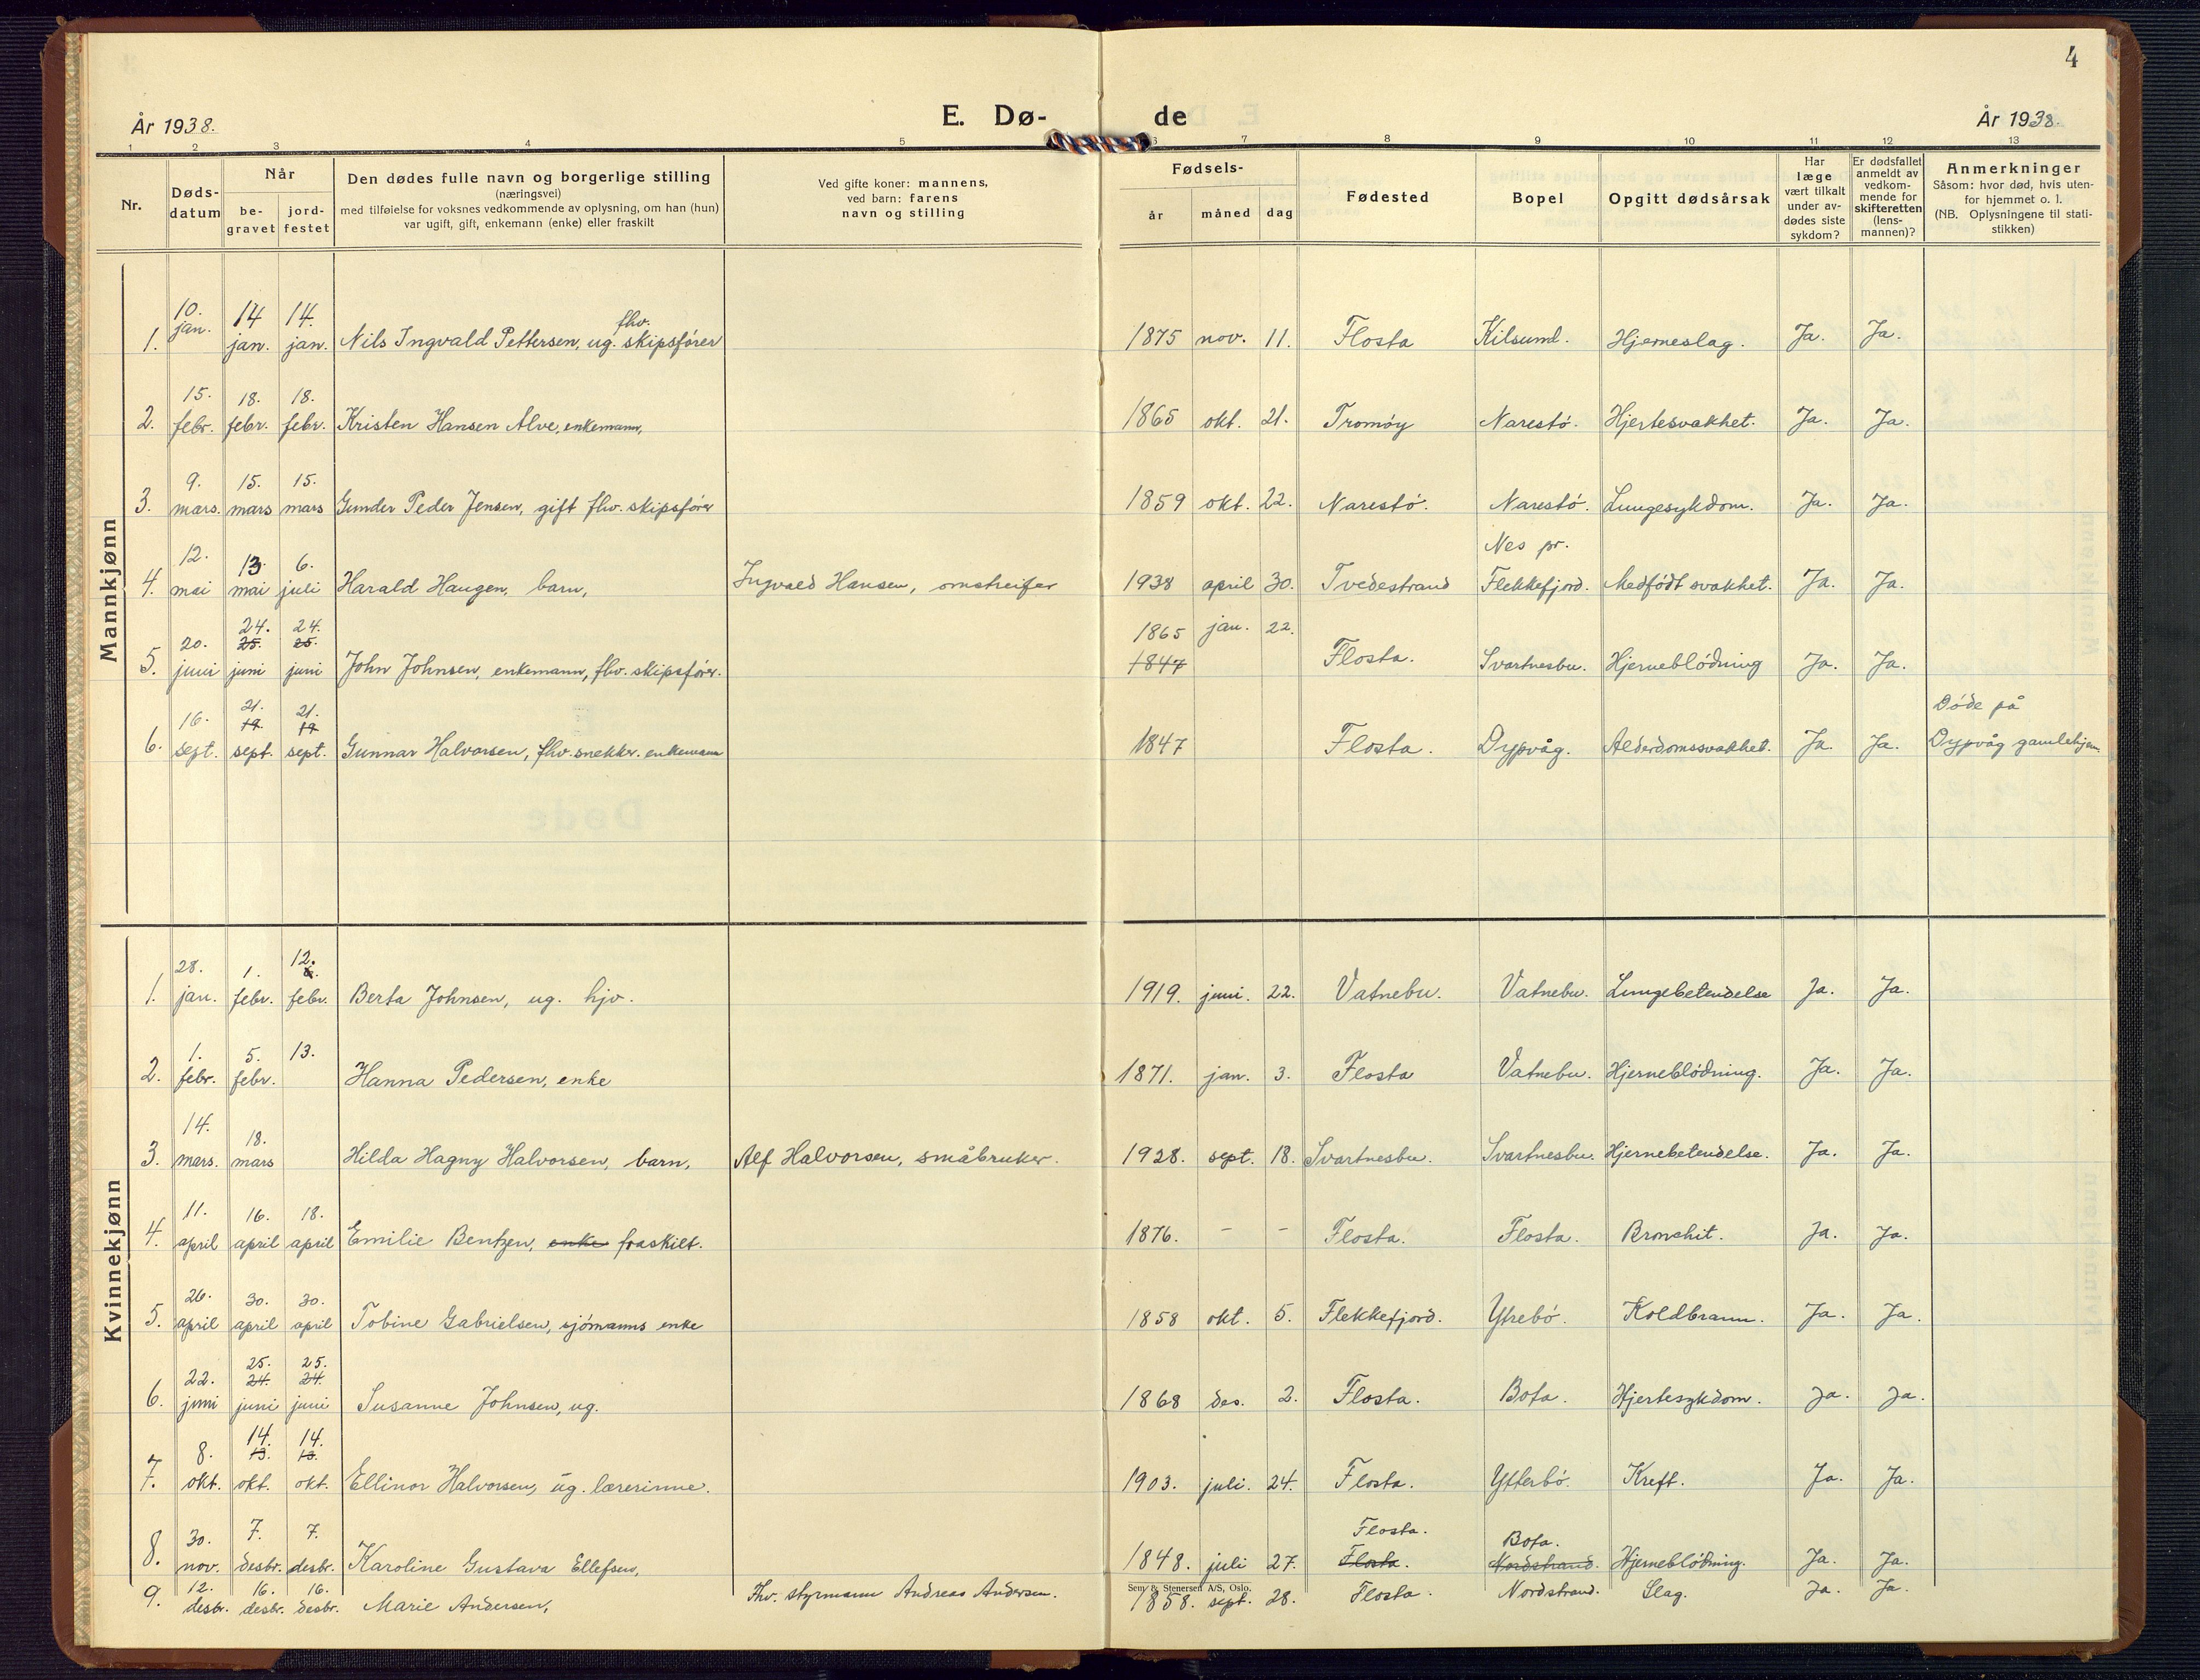 4
År 1938.
E. Dø-
de
År 1938.
1 2 3 4 5 6 7 8 9 10 11 12 13
Nr.
Døds-
datum
Når
be-
gravet
jord-
festet
Den dødes fulle navn og borgerlige stilling
(næringsvei)
med tilføielse for voksnes vedkommende av oplysning, om han (hun)
var ugift, gift, enkemann (enke) eller fraskilt
Ved gifte koner: mannens,
ved barn: farens
navn og stilling
Fødsels-
år
måned
dag
Fødested
Bopel
Opgitt dødsårsak
Har
læge
vært tilkalt
under av-
dødes siste
sykdom?
Er dødsfallet
anmeldt av
vedkom-
mende for
skifteretten
(lens-
mannen)?
Anmerkninger
Såsom: hvor død, hvis uten-
for hjemmet o. l.
(NB. Oplysningene til stati-
stikken)
Mannkjønn
10. 14 14. fhv.
1. jan. jan. jan. Nils Ingvald Pettersen, ug. skipsfører 1875 nov. 11. Flosta Kilsund. Hjerneslag. Ja. Ja.
15. 18. 18.
2. febr. febr. febr. Kristen Hansen Alve, enkemann, 1865 okt. 21. Tromøy Narestø. Hjertesvakhet. Ja. Ja.
9. 15. 15.
3. mars. mars mars Gunder Peder Jensen, gift fhv. skipsfører 1859 okt. 22. Narestø. Narestø. Lungesykdom. Ja. Ja.
12. 13. 6. Nes pr.
4. mai mai juli Harald Haugen, barn, Ingvald Hansen, omstreifer 1938 april 30. Tvedestrand Flekkefjord. Medfødt svakhet. Ja. Ja.
24. 24. 1865 jan. 22.
20. 25. 25. 1847
5. juni juni juni John Johnsen, enkemann, fhv. skipsfører. Flosta. Svartnesbu. Hjerneblødning Ja. Ja.
21. 21. Døde på
16. 19. 19.
6. sept. sept. sept. Gunnar Halvorsen, fhv. snekker. enkemann 1847 Flosta. Dypvåg. Alderdomssvakhet. Ja. Ja. Dypvåg gamlehjem
Kvinnekjønn
28. 1. 12.
1. jan. febr. febr. Berta Johnsen, ug. hjv. 1919. juni. 22. Vatnebu. Vatnebu. Lungebetendelse Ja. Ja.
1. 5. 13.
2. febr. febr. Hanna Pedersen, enke 1871. jan. 3. Flosta Vatnebu. Hjerneblødning. Ja. Ja.
14. 18.
3. mars. mars Hilda Hagny Halvorsen, barn, Alf Halvorsen, småbruker. 1928. sept. 18. Svartnesbu. Svartnesbu. Hjernebetendelse. Ja. Ja.
11. 16. 18.
4. april april april Emilie Bentzen, enke fraskilt. 1876. - - Flosta. Flosta. Bronchit. Ja. Ja.
26. 30. 30.
5. april april april Tobine Gabrielsen, sjømanns enke 1858 okt. 5. Flekkefjord. Ytrebø. Koldbrann. Ja. Ja.
25. 25.
22. 24. 24.
6. juni juni juni Susanne Johnsen, ug. 1868 des. 2. Flosta. Bota. Hjertesykdom. Ja. Ja.
14. 14.
8. 13. 13.
7. okt. okt. okt. Ellinor Halvorsen, ug. lærerinne. 1903. juli. 24. Flosta. Ytterbø. Kreft. Ja. Ja.
30. 7. 7. Flosta. Bota.
8. nov. desbr. desbr. Karoline Gustava Ellefsen, 1848. juli 27. Flosta. Nordstrand. Hjerneblødning. Ja. Ja.
Sem & Stenersen A/S, Oslo.
12. 16. 16.
9. desbr. desbr. desbr. Marie Andersen, Fhv. styrmann Andreas Andersen. 1858. sept. 28. Flosta. Nordstrand. Slag. Ja. Ja.